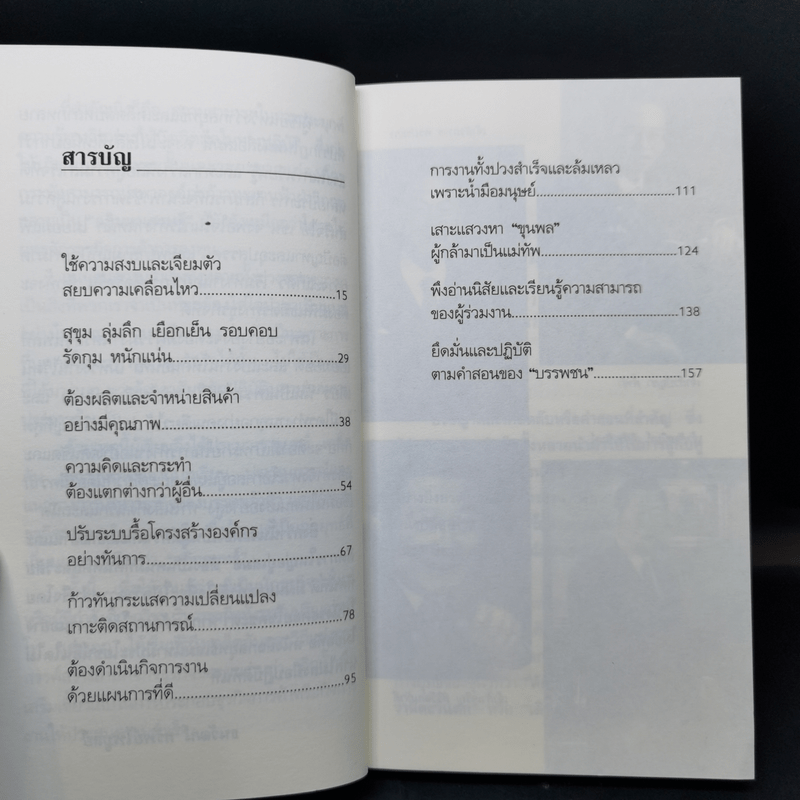 สารบัญ
ใช้ความสงบและเจียมตัว
สยบความเคลื่อนไหว.............................15
สุขุม ลุ่มลึก เยือกเย็น รอบคอบ
รัดกุม หนักแน่น...................................29
ต้องผลิตและจำหน่ายสินค้า
อย่างมีคุณภาพ.....................................38
ความคิดและกระทำ
ต้องแตกต่างกว่าผู้อื่น............................54
ปรับระบบรื้อโครงสร้างองค์กร
อย่างทันการ.........................................67
ก้าวทันกระแสความเปลี่ยนแปลง
เกาะติดสถานการณ์...............................78
ต้องดำเนินกิจการงาน
ด้วยแผนการที่ดี...................................95
การงานทั้งปวงสำเร็จและล้มเหลว
เพราะน้ำมือมนุษย์...............................111
เสาะแสวงหา “ขุนพล”
ผู้กล้ามาเป็นแม่ทัพ..............................124
พึงอ่านนิสัยและเรียนรู้ความสามารถ
ของผู้ร่วมงาน.....................................138
ยึดมั่นและปฏิบัติ
ตามคำสอนของ “บรรพชน”...................157